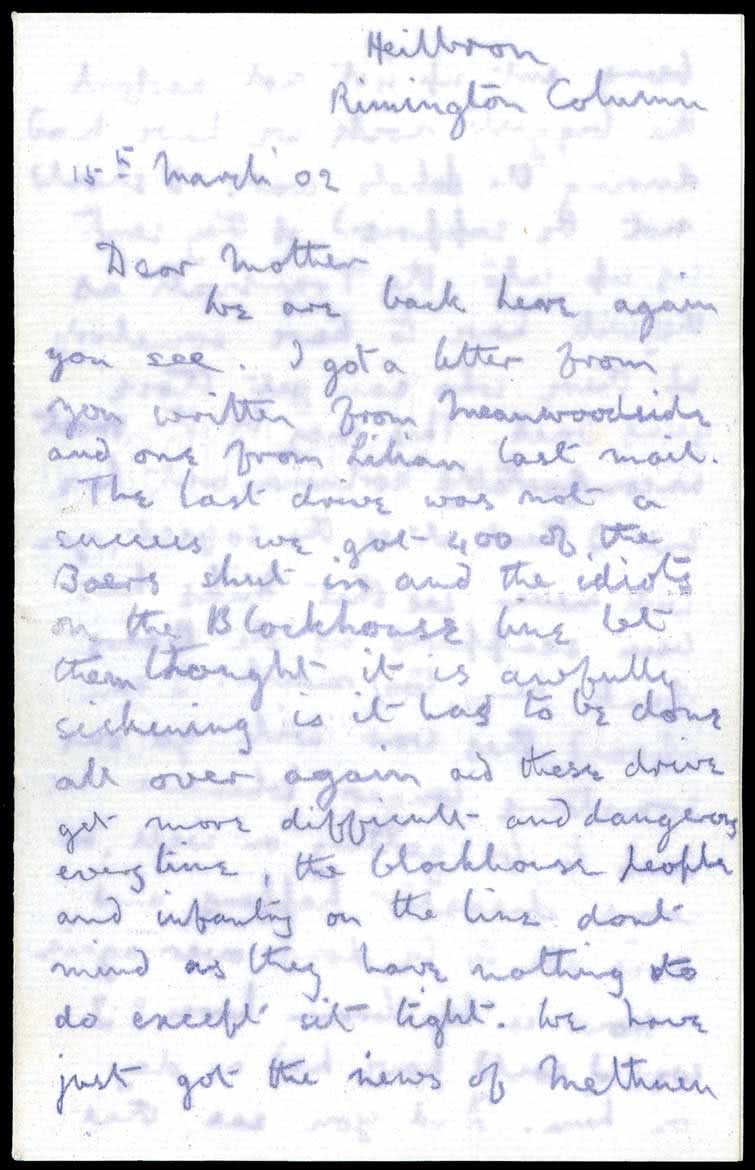 Heilbron
Rimington Column
15th March 02
Dear Mother
We are back here again
you see. I got a letter from
you written from Meanwoodside
and one from Lilian last mail.
The last drive was not a
success we got 400 of the
Boers shut in and the idiots
on the Blockhouse line let
them thought it is awfully
sickening is it had to be done
all over again and these drive
get more difficult and dangerous
every time, the blockhouse people
and infantry on the line dont
mind as they have nothing to
do except sit tight. We have
just got the news of Methuen